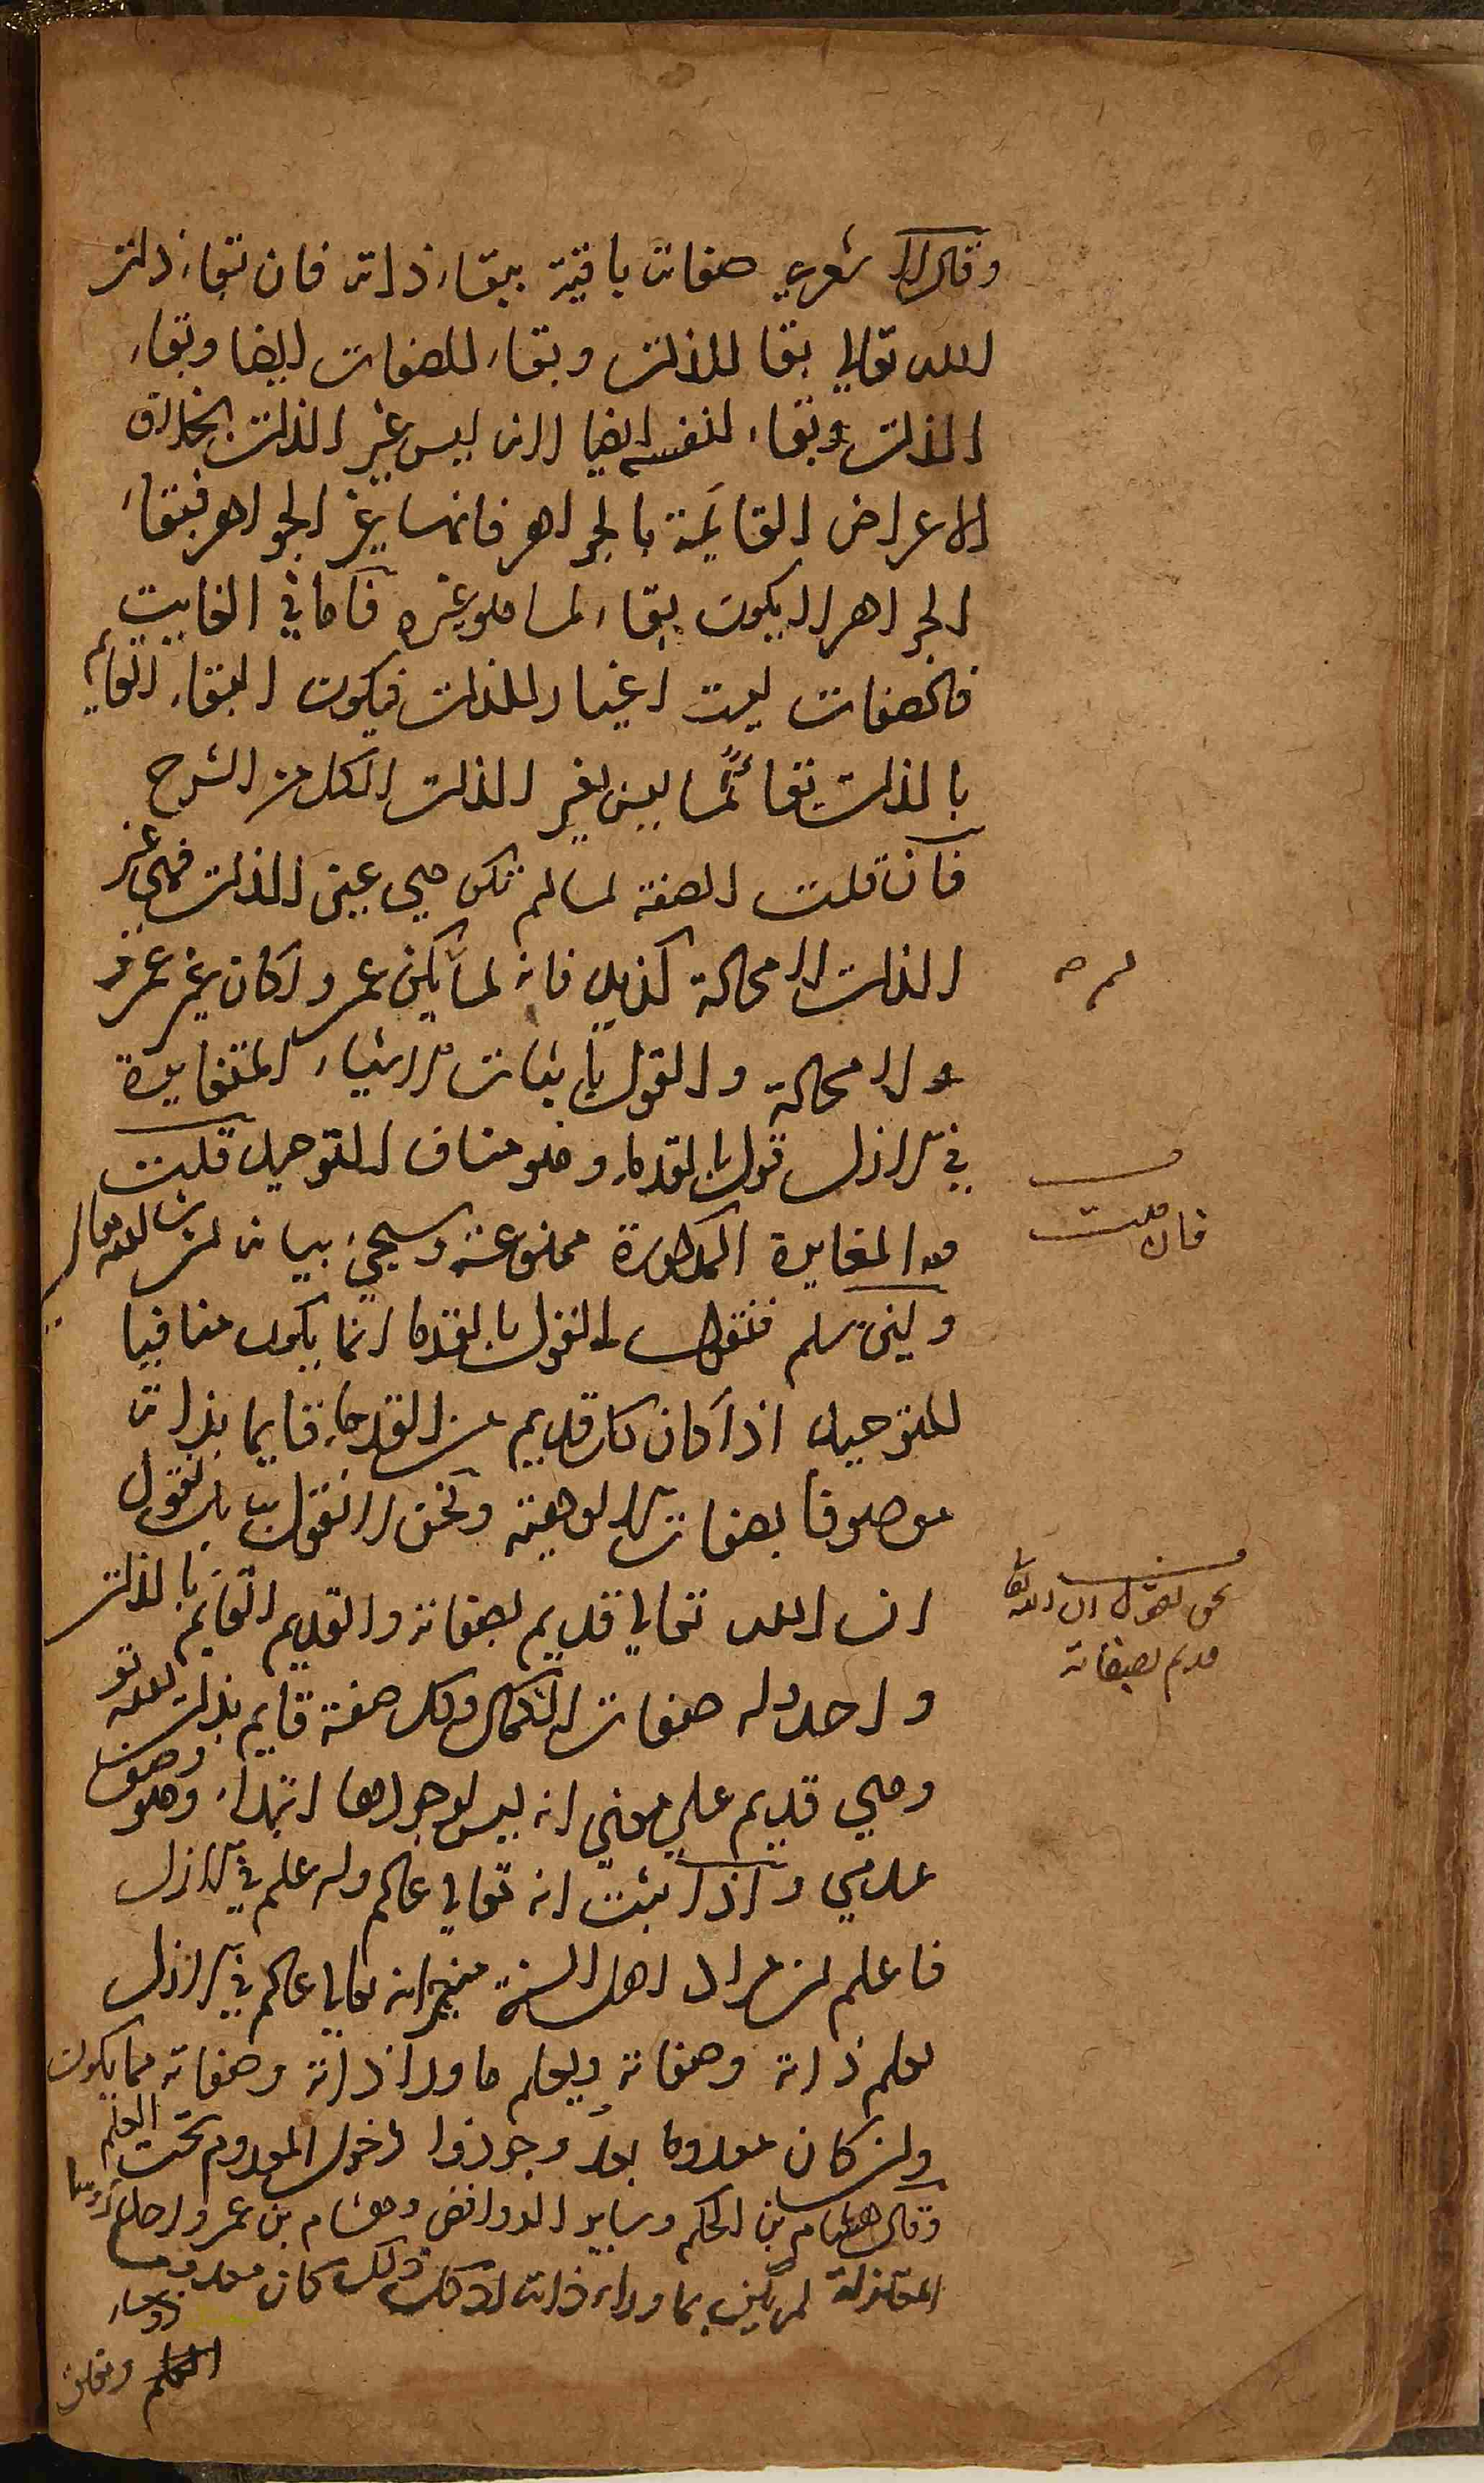 وقال الاشعري صفاته باقية ببقاء ذاته فان بقاء ذات
الله تعالي بقا للذات وبقاء للصفات ايضا وبقاء
الذات وبقاء لنفسه ايضا لانه ليس غير الذات بخلاف
الاعراض القايمة بالجواهر فانها غير الجواهر فبقاء
الجواهر لا يكون بقاء لما هو غيره فاما في الغايب
فالصفات ليست اغيارا للذات فيكون البقاء القايم
بالذات بقاء لما ليس بغير الذات الكل من الشرح
فان قلت الصفة لما لم تكن هي عين الذات فهي غير
الذات لا محالة كزيد فانه لما لم يكن عمروا كان غير عمرو
لا محالة والقول باثبات الاشياء المتغايرة
في الازل قول بالقدماء وهو مناف للتوحيد قلت
المغايرة المذكورة ممنوعة وسيجيء بيانه ان شا الله تعالي
ولئن سلم فنقول القول بالقدما انما يكون منافيا
للتوحيد اذا كان كل قديم من القدماء قايما بذاته
موصوفا بصفات الالوهية ونحن لا نقول به بل نقول
ان الله تعالي قديم بصفاته والقديم القايم بالذات
واحد وله صفات الكمال وكل صفة قايم بذات الله تع
وهي قديم علي معني انه ليس لوجودها ابتداء وهو وصف
عدمي واذا ثبت انه تعالي عالم وله علم في الازل
فاعلم ان مراد اهل السنة انه تعالي عالم في الازل
بعلم ذاته وصفاته ويعلم ما وراء ذاته وصفاته مما يكون
وان كان معدوما بعد وجوزوا دخول المعدوم تحت العلم
وقال هشام بن الحكم وساير الروافض وهشام بن عمرو احد رؤسا
المعتزلة لم يكن بما وراء ذاته لان كل ذلك كان معدوما
فان قلت
نحن نقول ان الله تعا
قديم بصفاته